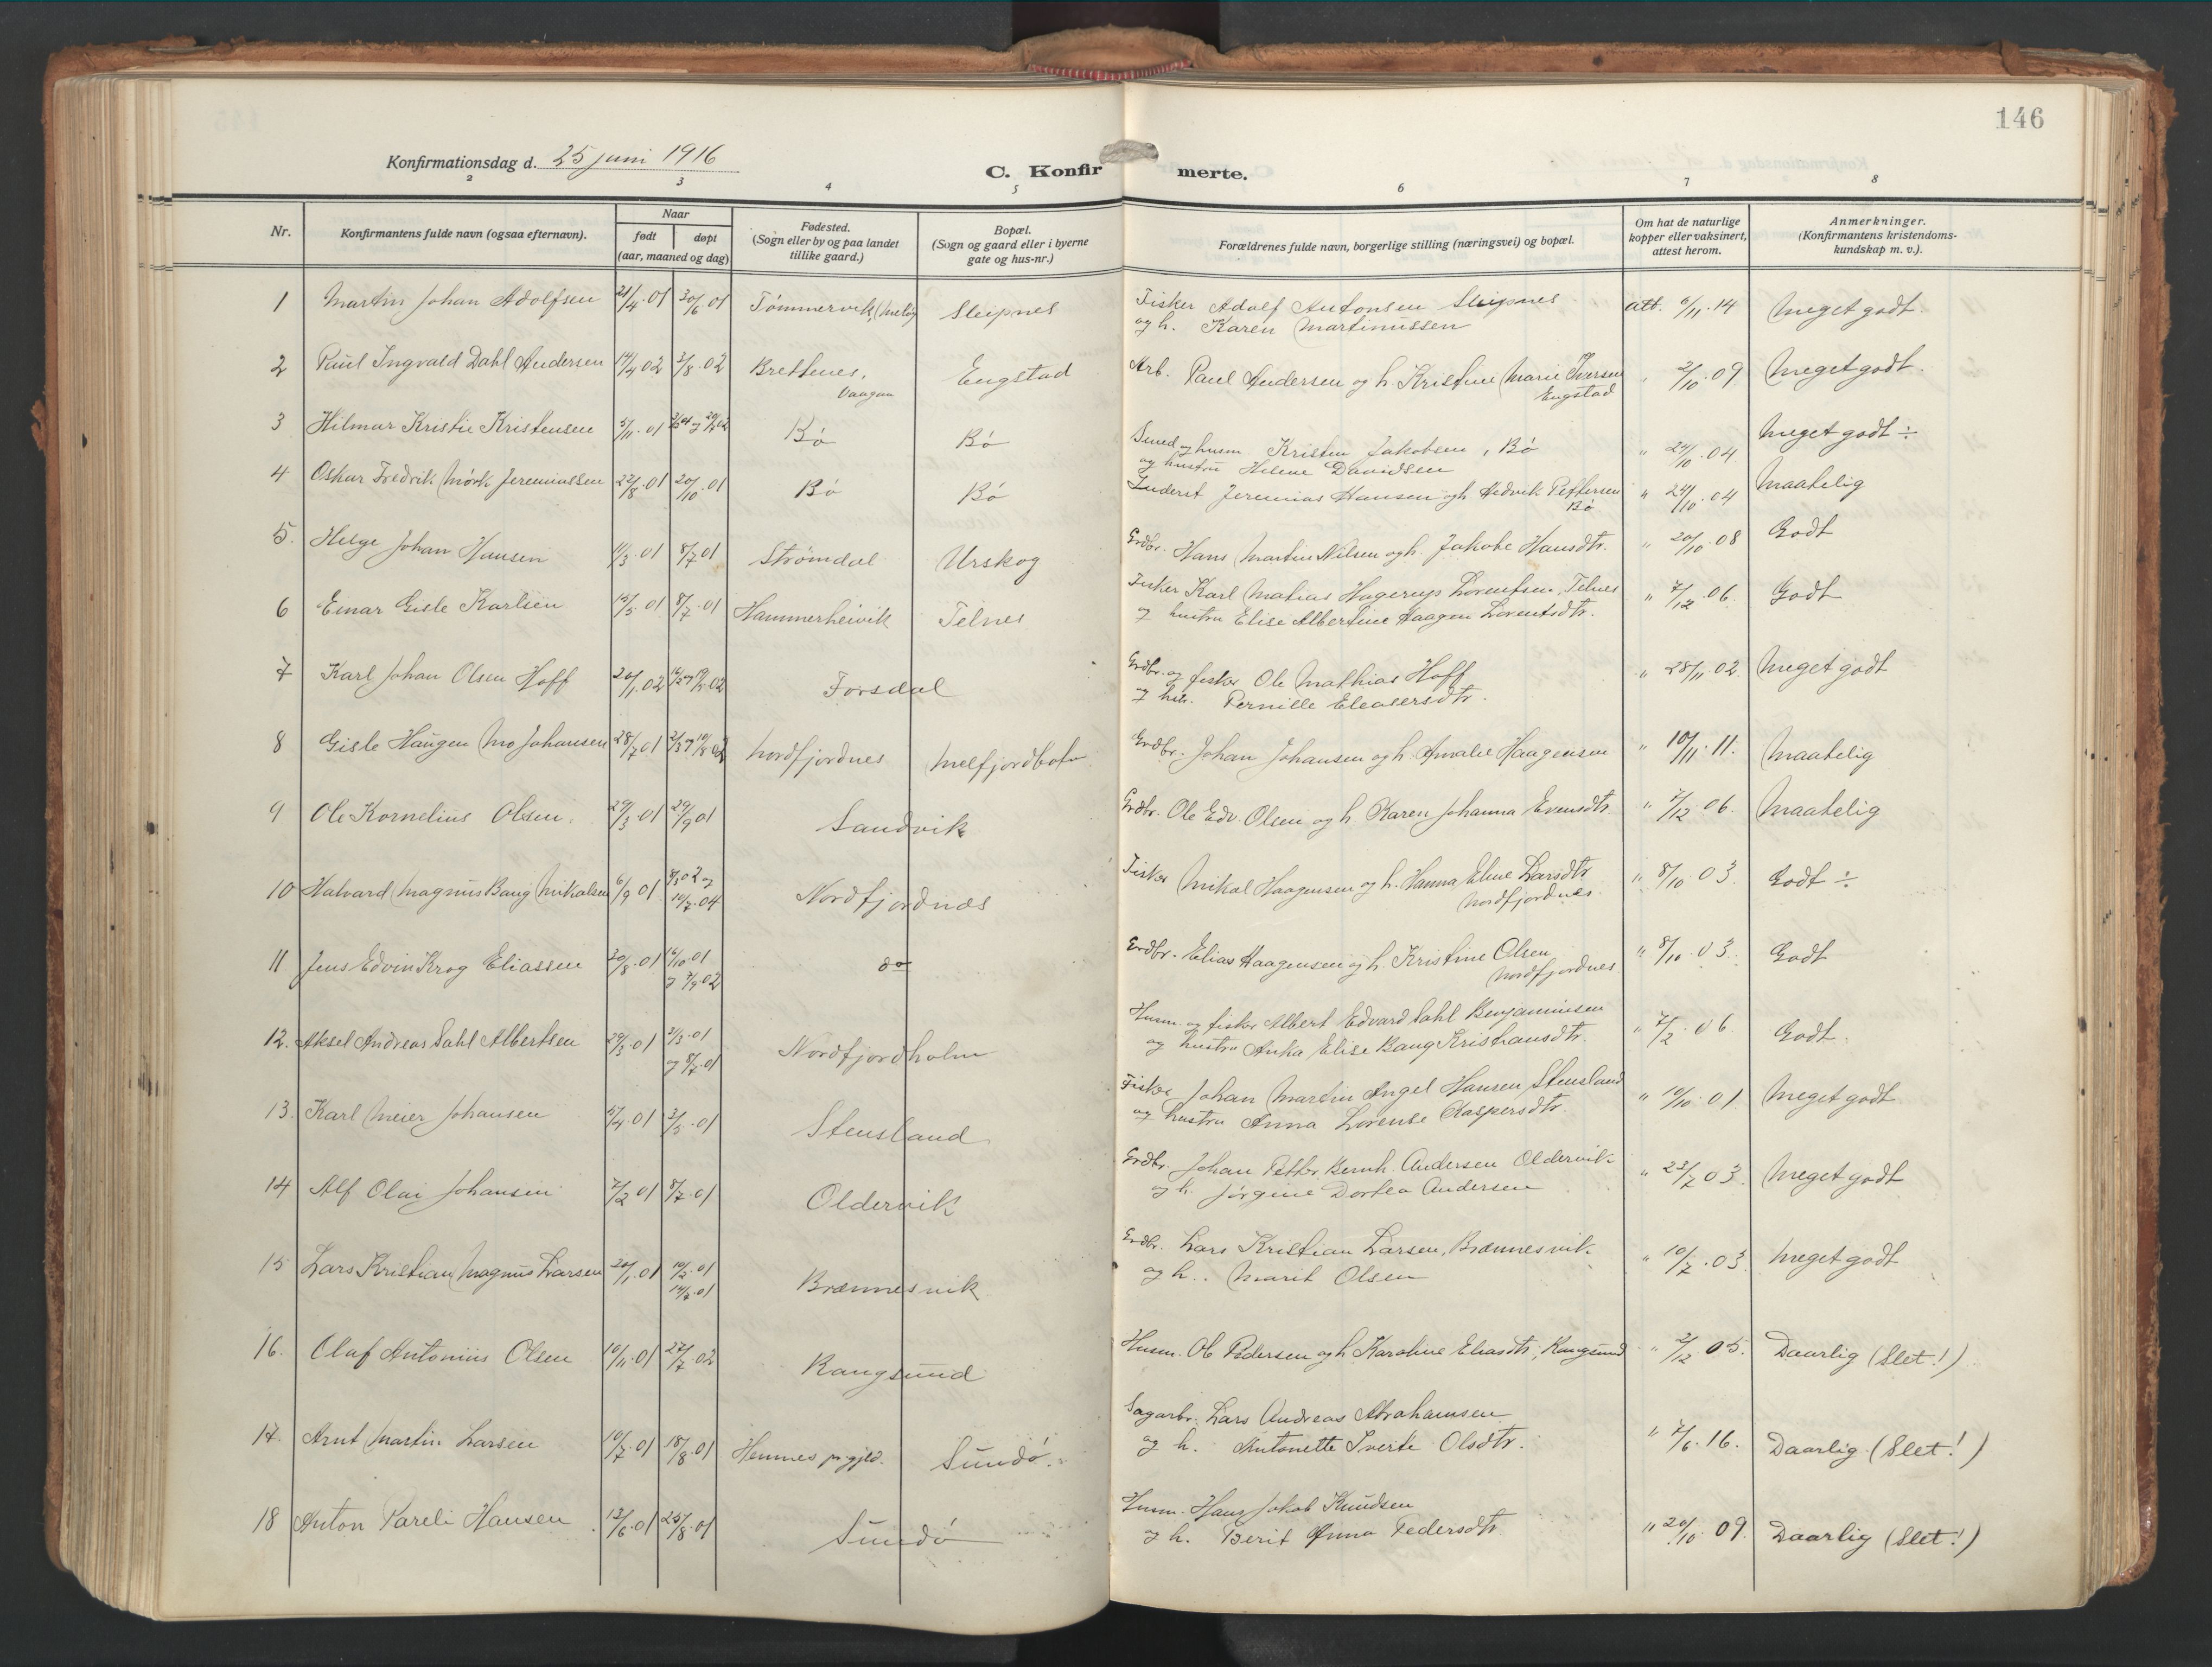 146
Konfirmationsdag d. 25 juni 1916
C. Konfir merte.
2 3 4 5 6 7 8
Nr.
Konfirmantens fulde navn (ogsaa efternavn).
Naar
født døpt
(aar, maaned og dag)
Fødested.
(Sogn eller by og paa landet
tillike gaard.)
Bopæl.
(Sogn og gaard eller i byerne
gate og hus-nr.)
Forældrenes fulde navn, borgerlige stilling (næringsvei) og bopæl.
Om hat de naturlige
kopper eller vaksinert,
attest herom.
Anmerkninger.
(Konfirmantens kristendoms-
kundskap m. v.).
1 Martin Johan Adolfsen 21/4·01 30/6·01 Tømmervik, (Meløy Sleipnes
Fisker Adolf Antonsen Sleipnes
og h. Karen Martinussen
att. 6/11·14 Meget godt.
2 Paul Ingvald Dahl Andersen 14/4 02 3/8·02 Brettenes, Vaagan Engstad
Arb. Paul Andersen og h. Kristine Marie Iversen
Engstad
" 2/10·09 Meget godt.
3 Hilmar Kristie Kristensen 5/11·01 Bø Bø
Smed og husm Kristen Jakobsen, Bø
og hustru Helene Davidsen
" 24/10·04 Meget godt ÷
4 Oskar Fredrik Mørk Jeremiassen 22/8·01 20/10·01 Bø Bø
Inderst Jeremias Hansen og h. Hedvik Pettersen
Bø
" 24/10·04 Maatelig
5. Helge Johan Hansen 11/3·01 8/7 01 Strømdal Urskog
Grdbr. Hans Martin Nilsen og h. Jakobe Hansdtr.
" 20/10·08 Godt
6 Einar Gisle Karlsen 15/5·01 8/7·01 Hammerheivik Telnes
Fisker Karl Mathias Hagerup Lorentsen, Telnes
og hustru Elise Albertine Haagen Lorentsdtr.
" 7/12·06. Godt
7 Karl Johan Olsen Hoff 20/1·02 Forsdal
Grdbr. og fisker Ole Mathias Hoff
og hu. Pernille Eleasersdtr.
" 28/11·02. Meget godt
8 Gisle Haugen Mo Johansen 28/7·01 Nordfjordnes Melfjordbotn
Grdbr. Johan Johansen og h. Amalie Haagensen
" 10/11·11. Maatelig
9 Ole Kornelius Olsen. 29/3·01 29/9 01 Sandvik
Grdbr. Ole Edv. Olsen og h. Karen Johanna Evensdtr.
" 7/12·06. Maatelig
10 Halvard Magnus Bang Mikalsen 6/9 01 9/3 02 og
10/7·04
Nordfjordnæs
Fisker Mikal Haagensen og h. Hanna Eline Larsdtr
Nordfjordnes
" 8/10·03. Godt ÷
11 Jens Edvin Krog Eliassen 20/8·01 16/10·01
og 7/9·02
do
Grdbr. Elias Haagensen og h. Kristine Olsen
Nordfjordnes
" 8/10·03. Godt
12. Aksel Andreas Dahl Albertsen 29/3·01 31/3·01
og 8/7·01
Nordfjordholm
Husm. og fisker Albert Edvard Dahl Benjaminsen
og hustru Anka Elise Bang Kristiansdtr.
" 7/2·06. Godt.
13. Karl Meier Johansen 5/4·01 3/5·01 Stensland
Fisker Johan Martin Angel Hansen, Stensland
og hustru Anna Lorense Kaspersdtr.
" 10/10·01. Meget godt
14 Alf Olai Johansen 7/2 01 8/7·01 Oldervik
Grdbr. Johan Petter Bernh. Andersen Oldervik
og h. Jørgine Dortea Andersen
" 23/7 03. Meget godt
15 Lars Kristian Magnus Larsen 20/1·01 10/2·01
14/7·01
Brænnesvik
Grdbr. Lars Kristian Larsen, Brænnesvik
og h.. Marit Olsen
" 10/7·03. Meget godt
16. Olaf Antonius Olsen 10/11·01 27/7·02 Rangsund
Husm. Ole Pedersen og h Karoline Eliasdtr, Rangsund
" 2/12·05. Daarlig (Slet!)
17. Arnt Martin Larsen 10/7·01 18/8·01 Hemnes prgjeld. Sundø.
Sagarbr. Lars Andreas Abrahamsen
og h. Antonette Sverke Olsdtr.
" 7/6·16. Daarlig (Slet!)
18 Anton Pareli Hansen 13/6·01 25/8·01 Sundø
Husm. Hans Jakob Knudsen
og h. Berit Anna Pedersdtr.
" 20/10·09. Daarlig (Slet!)